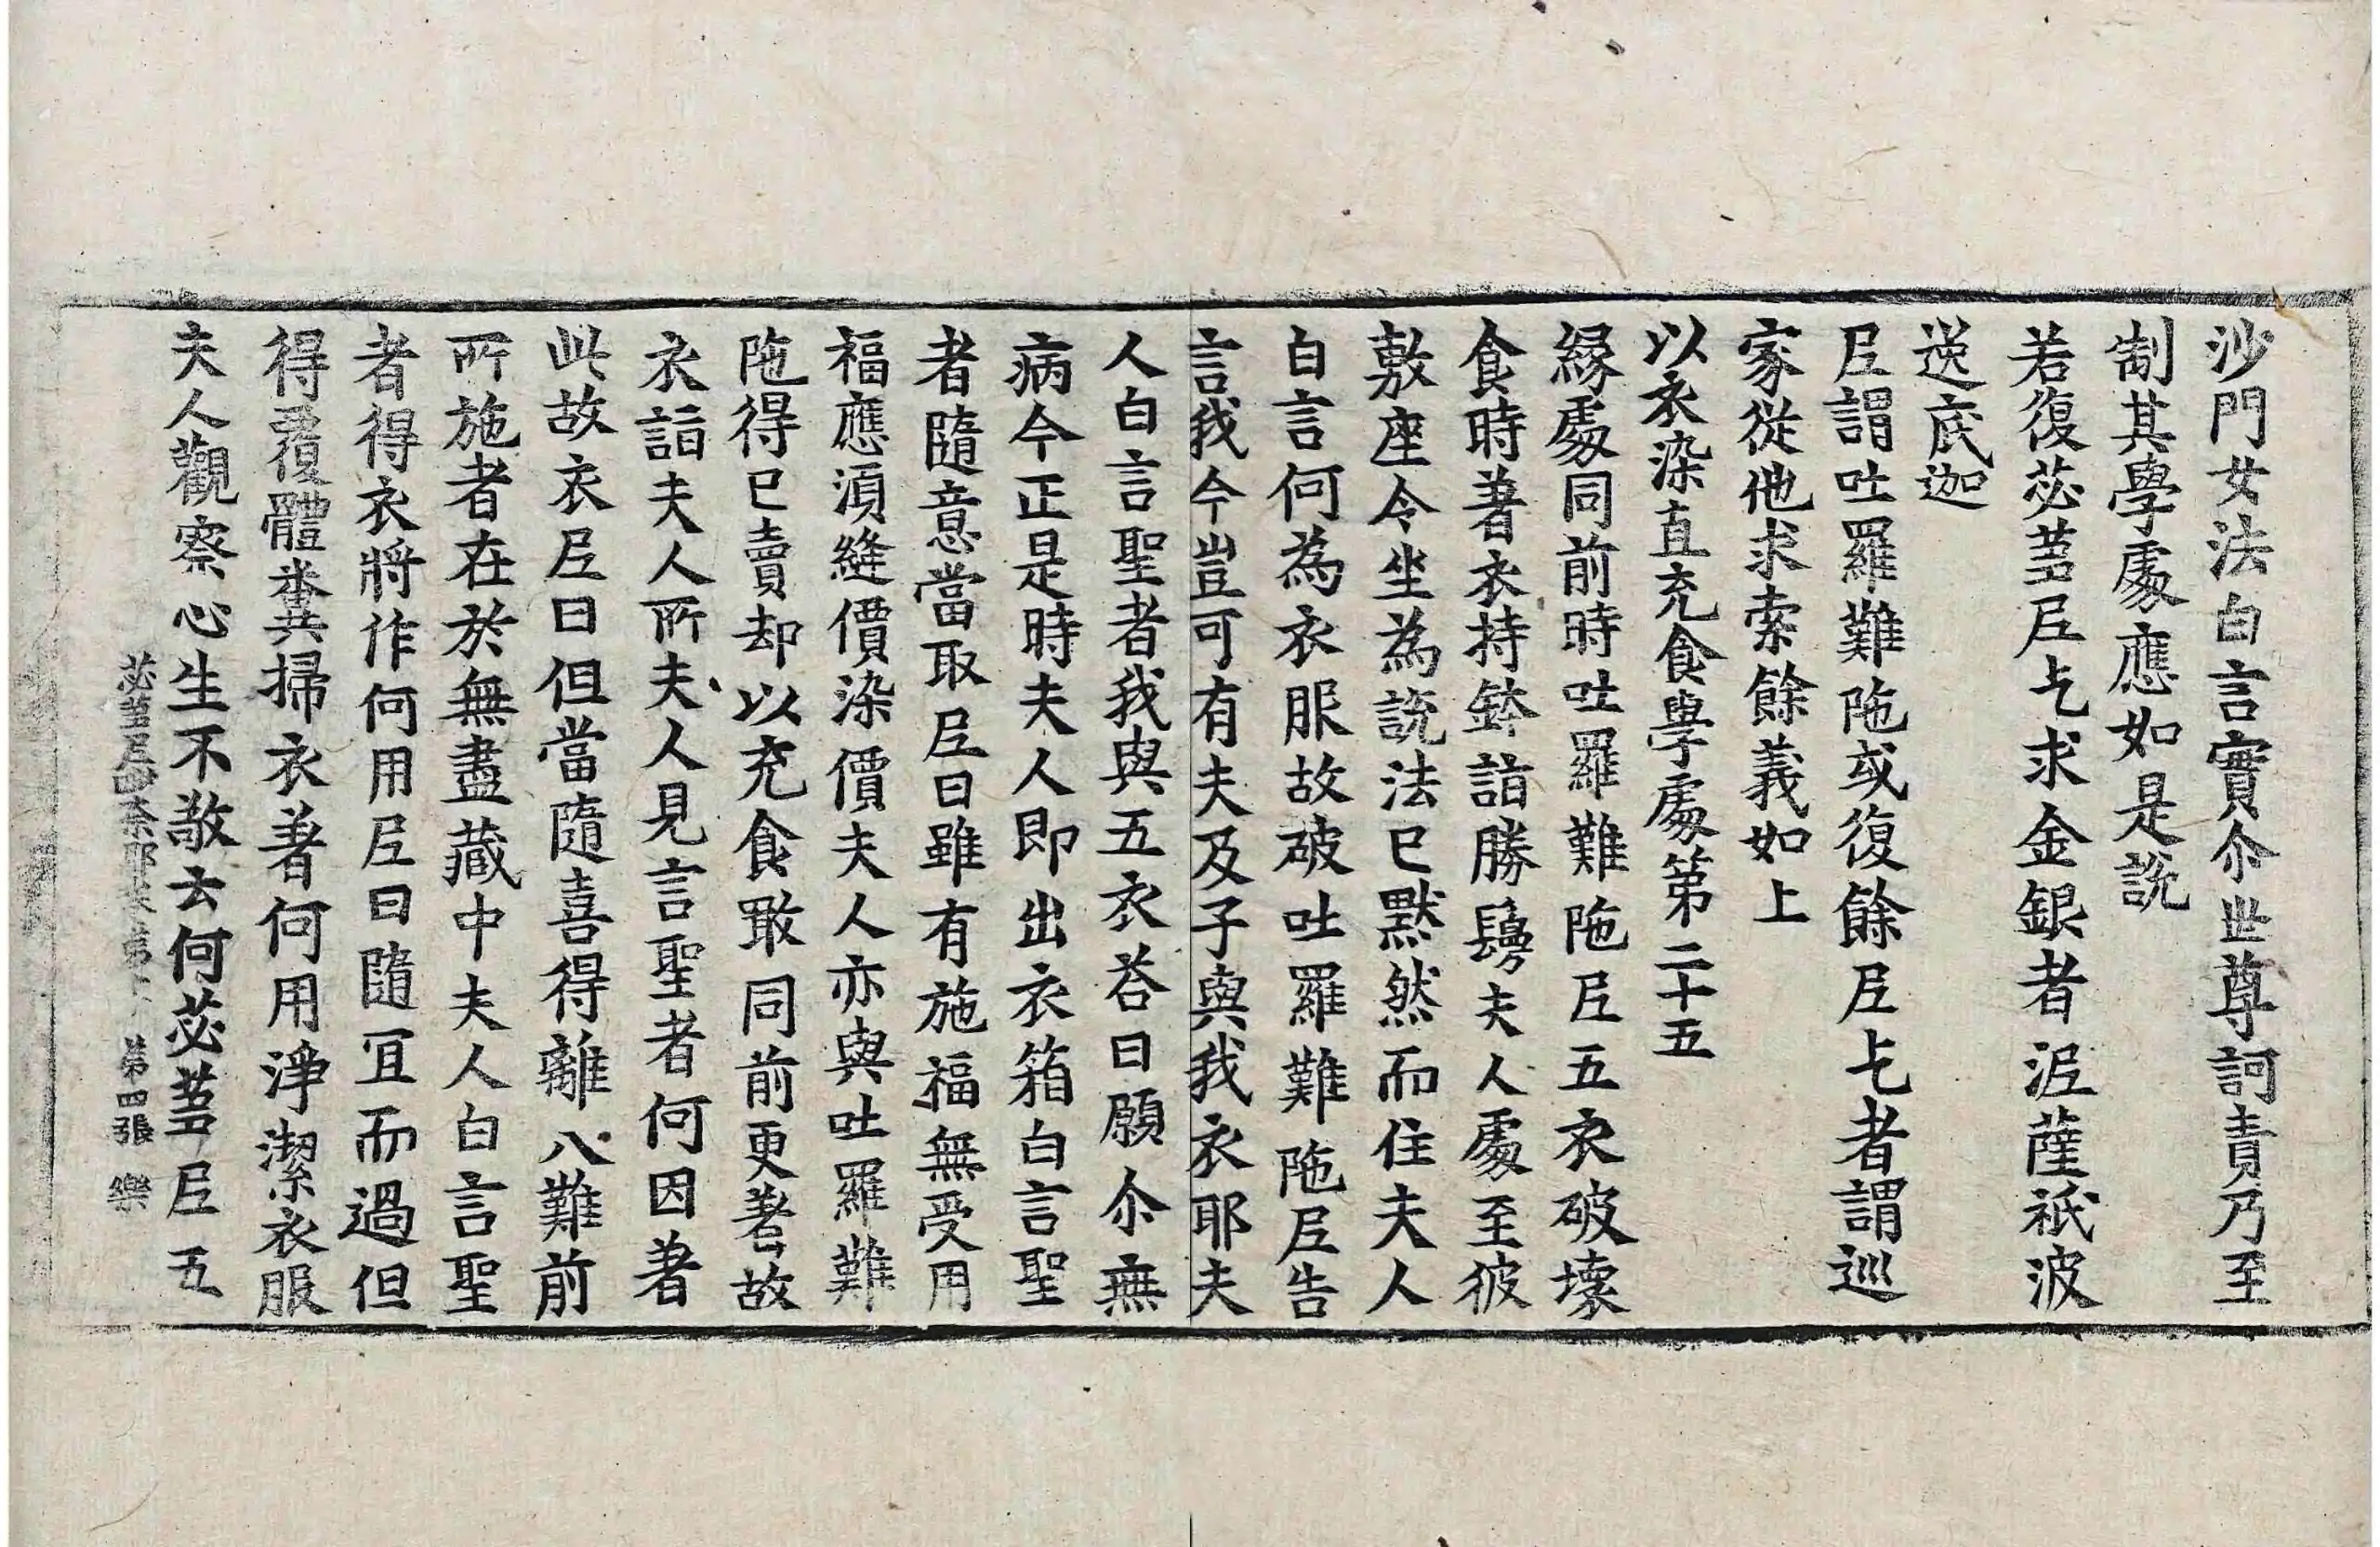 沙門女法白言實尒世尊訶責乃至
制其學處應如是說
若復苾蒭尼乞求金銀者泥薩祇波
逸底迦
尼謂吐羅難陁或復餘尼乞者謂巡
家從他求索餘義如上
以衣染直充食學處第二十五
緣處同前時吐羅難陁尼五衣破壞
食時著衣持鉢詣勝鬘夫人處至彼
敷座令坐為說法已默然而住夫人
白言何為衣服故破吐羅難陁尼告
言我今豈可有夫及子與我衣耶夫
人白言聖者我與五衣荅曰願尒無
病今正是時夫人即出衣箱白言聖
者隨意當取尼曰雖有施福無受用
福應湏縫價染價夫人亦與吐羅難
陁得已賣却以充食噉同前更著故
衣詣夫人所夫人見言聖者何因著
此故衣尼曰但當隨喜得離八難前
所施者在於無盡藏中夫人白言聖
者得衣將作何用尼曰隨冝而過但
得覆體糞掃衣著何用淨潔衣服
夫人觀察心生不敬云何苾蒭尼五
苾蒭尼毗奈耶 第 第四張 樂